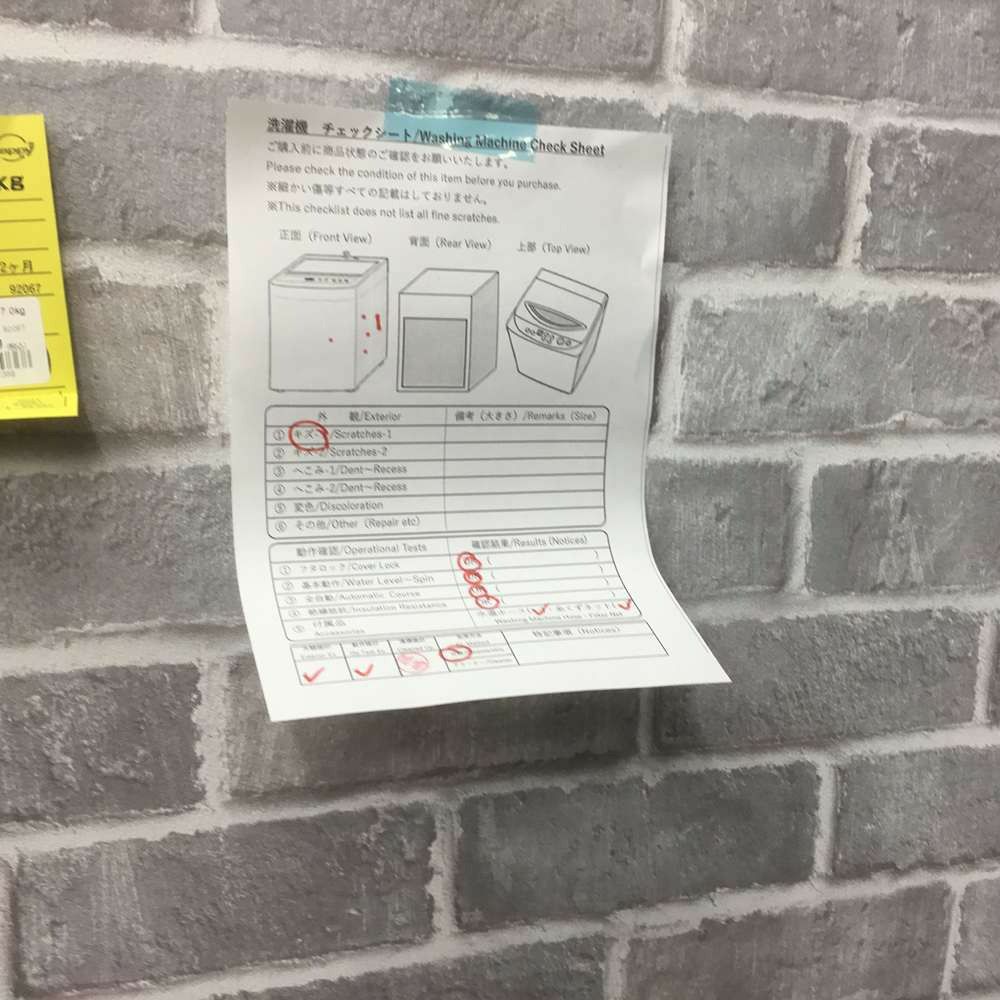 洗濯機 チェックシート/Washing Machine Check Sheet
ご購入前に商品状態のご確認をお願いいたします。
Please check the condition of this item before you purchase.
※細かい傷等すべての記載はしておりません。
※This checklist does not list all fine scratches.
正面（Front View） 背面（Rear View） 上部（Top View）
外 観/Exterior 備考（大きさ）/Remarks（Size）
① キズ-1/Scratches-1
② キズ-2/Scratches-2
③ へこみ-1/Dent～Recess
④ へこみ-2/Dent～Recess
⑤ 変色/Discoloration
⑥ その他/Other（Repair etc）
動作確認/Operational Tests 確認結果/Results (Notices)
① フタロック/Cover Lock ( )
② 基本動作/Water Level～Spin ( )
③ 全自動/Automatic Course ( )
④ 絶縁抵抗/Insulation Resistance ( )
⑤ 付属品
Accessories
Washing Machine Hose
特記事項（Notices）
kg
2ヶ月
92067
7.0kg
92067